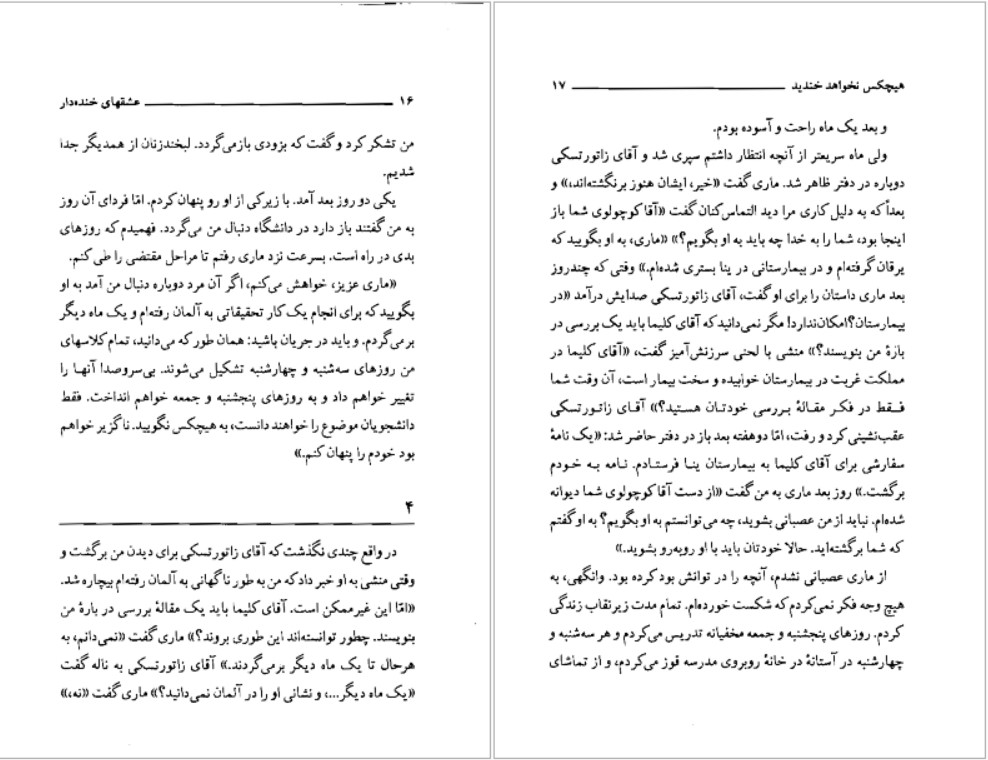 ۱۶ عشقهای خنده‌دار
من تشکر کرد و گفت که بزودی بازمی‌گردد. لبخندزنان از همدیگر جدا
شدیم.
یکی دو روز بعد آمد. با زیرکی از او رو پنهان کردم. امّا فردای آن روز
به من گفتند باز دارد در دانشگاه دنبال من می‌گردد. فهمیدم که روزهای
بدی در راه است. بسرعت نزد ماری رفتم تا مراحل مقتضی را طی کنم.
«ماری عزیز، خواهش می‌کنم، اگر آن مرد دوباره دنبال من آمد به او
بگویید که برای انجام یک کار تحقیقاتی به آلمان رفته‌ام و یک ماه دیگر
برمی‌گردم. و باید در جریان باشید: همان طور که می‌دانید، تمام کلاسهای
من روزهای سه‌شنبه و چهارشنبه تشکیل می‌شوند. بی‌سروصدا آنها را
تغییر خواهم داد و به روزهای پنجشنبه و جمعه خواهم انداخت. فقط
دانشجویان موضوع را خواهند دانست، به هیچکس نگویید. ناگزیر خواهم
بود خودم را پنهان کنم.»
۴
در واقع چندی نگذشت که آقای زاتورتسکی برای دیدن من برگشت و
وقتی منشی به او خبر داد که من به طور ناگهانی به آلمان رفته‌ام بیچاره شد.
«امّا این غیرممکن است. آقای کلیما باید یک مقالهٔ بررسی در بارهٔ من
بنویسند. چطور توانسته‌اند این طوری بروند؟» ماری گفت «نمی‌دانم، به
هرحال تا یک ماه دیگر برمی‌گردند.» آقای زاتورتسکی به ناله گفت
«یک ماه دیگر...، و نشانی او را در آلمان نمی‌دانید؟» ماری گفت «نه،»
هیچکس نخواهد خندید ۱۷
و بعد یک ماه راحت و آسوده بودم.
ولی ماه سریعتر از آنچه انتظار داشتم سپری شد و آقای زاتورتسکی
دوباره در دفتر ظاهر شد. ماری گفت «خیر، ایشان هنوز برنگشته‌اند،» و
بعداً که به دلیل کاری مرا دید التماس‌کنان گفت «آقا کوچولوی شما باز
اینجا بود، شما را به خدا چه باید به او بگویم؟» «ماری، به او بگویید که
یرقان گرفته‌ام و در بیمارستانی در ینا بستری شده‌ام.» وقتی که چندروز
بعد ماری داستان را برای او گفت، آقای زاتورتسکی صدایش درآمد «در
بیمارستان؟امکان‌ندارد! مگر نمی‌دانید که آقای کلیما باید یک بررسی در
بارهٔ من بنویسند؟» منشی با لحنی سرزنش‌آمیز گفت، «آقای کلیما در
مملکت غربت در بیمارستان خوابیده و سخت بیمار است، آن وقت شما
فقط در فکر مقالهٔ بررسی خودتان هستید؟» آقای زاتورتسکی
عقب‌نشینی کرد و رفت، امّا دوهفته بعد باز در دفتر حاضر شد: «یک نامهٔ
سفارشی برای آقای کلیما به بیمارستان ینا فرستادم. نامه به خودم
برگشت.» روز بعد ماری به من گفت «از دست آقا کوچولوی شما دیوانه
شده‌ام. نباید از من عصبانی بشوید، چه می‌توانستم به او بگویم؟ به او گفتم
که شما برگشته‌اید. حالا خودتان باید با او روبه‌رو بشوید.»
از ماری عصبانی نشدم، آنچه را در توانش بود کرده بود. وانگهی، به
هیچ وجه فکر نمی‌کردم که شکست خورده‌ام. تمام مدت زیرنقاب زندگی
کردم. روزهای پنجشنبه و جمعه مخفیانه تدریس می‌کردم و هر سه‌شنبه و
چهارشنبه در آستانهٔ در خانهٔ روبروی مدرسه قوز می‌کردم، و از تماشای